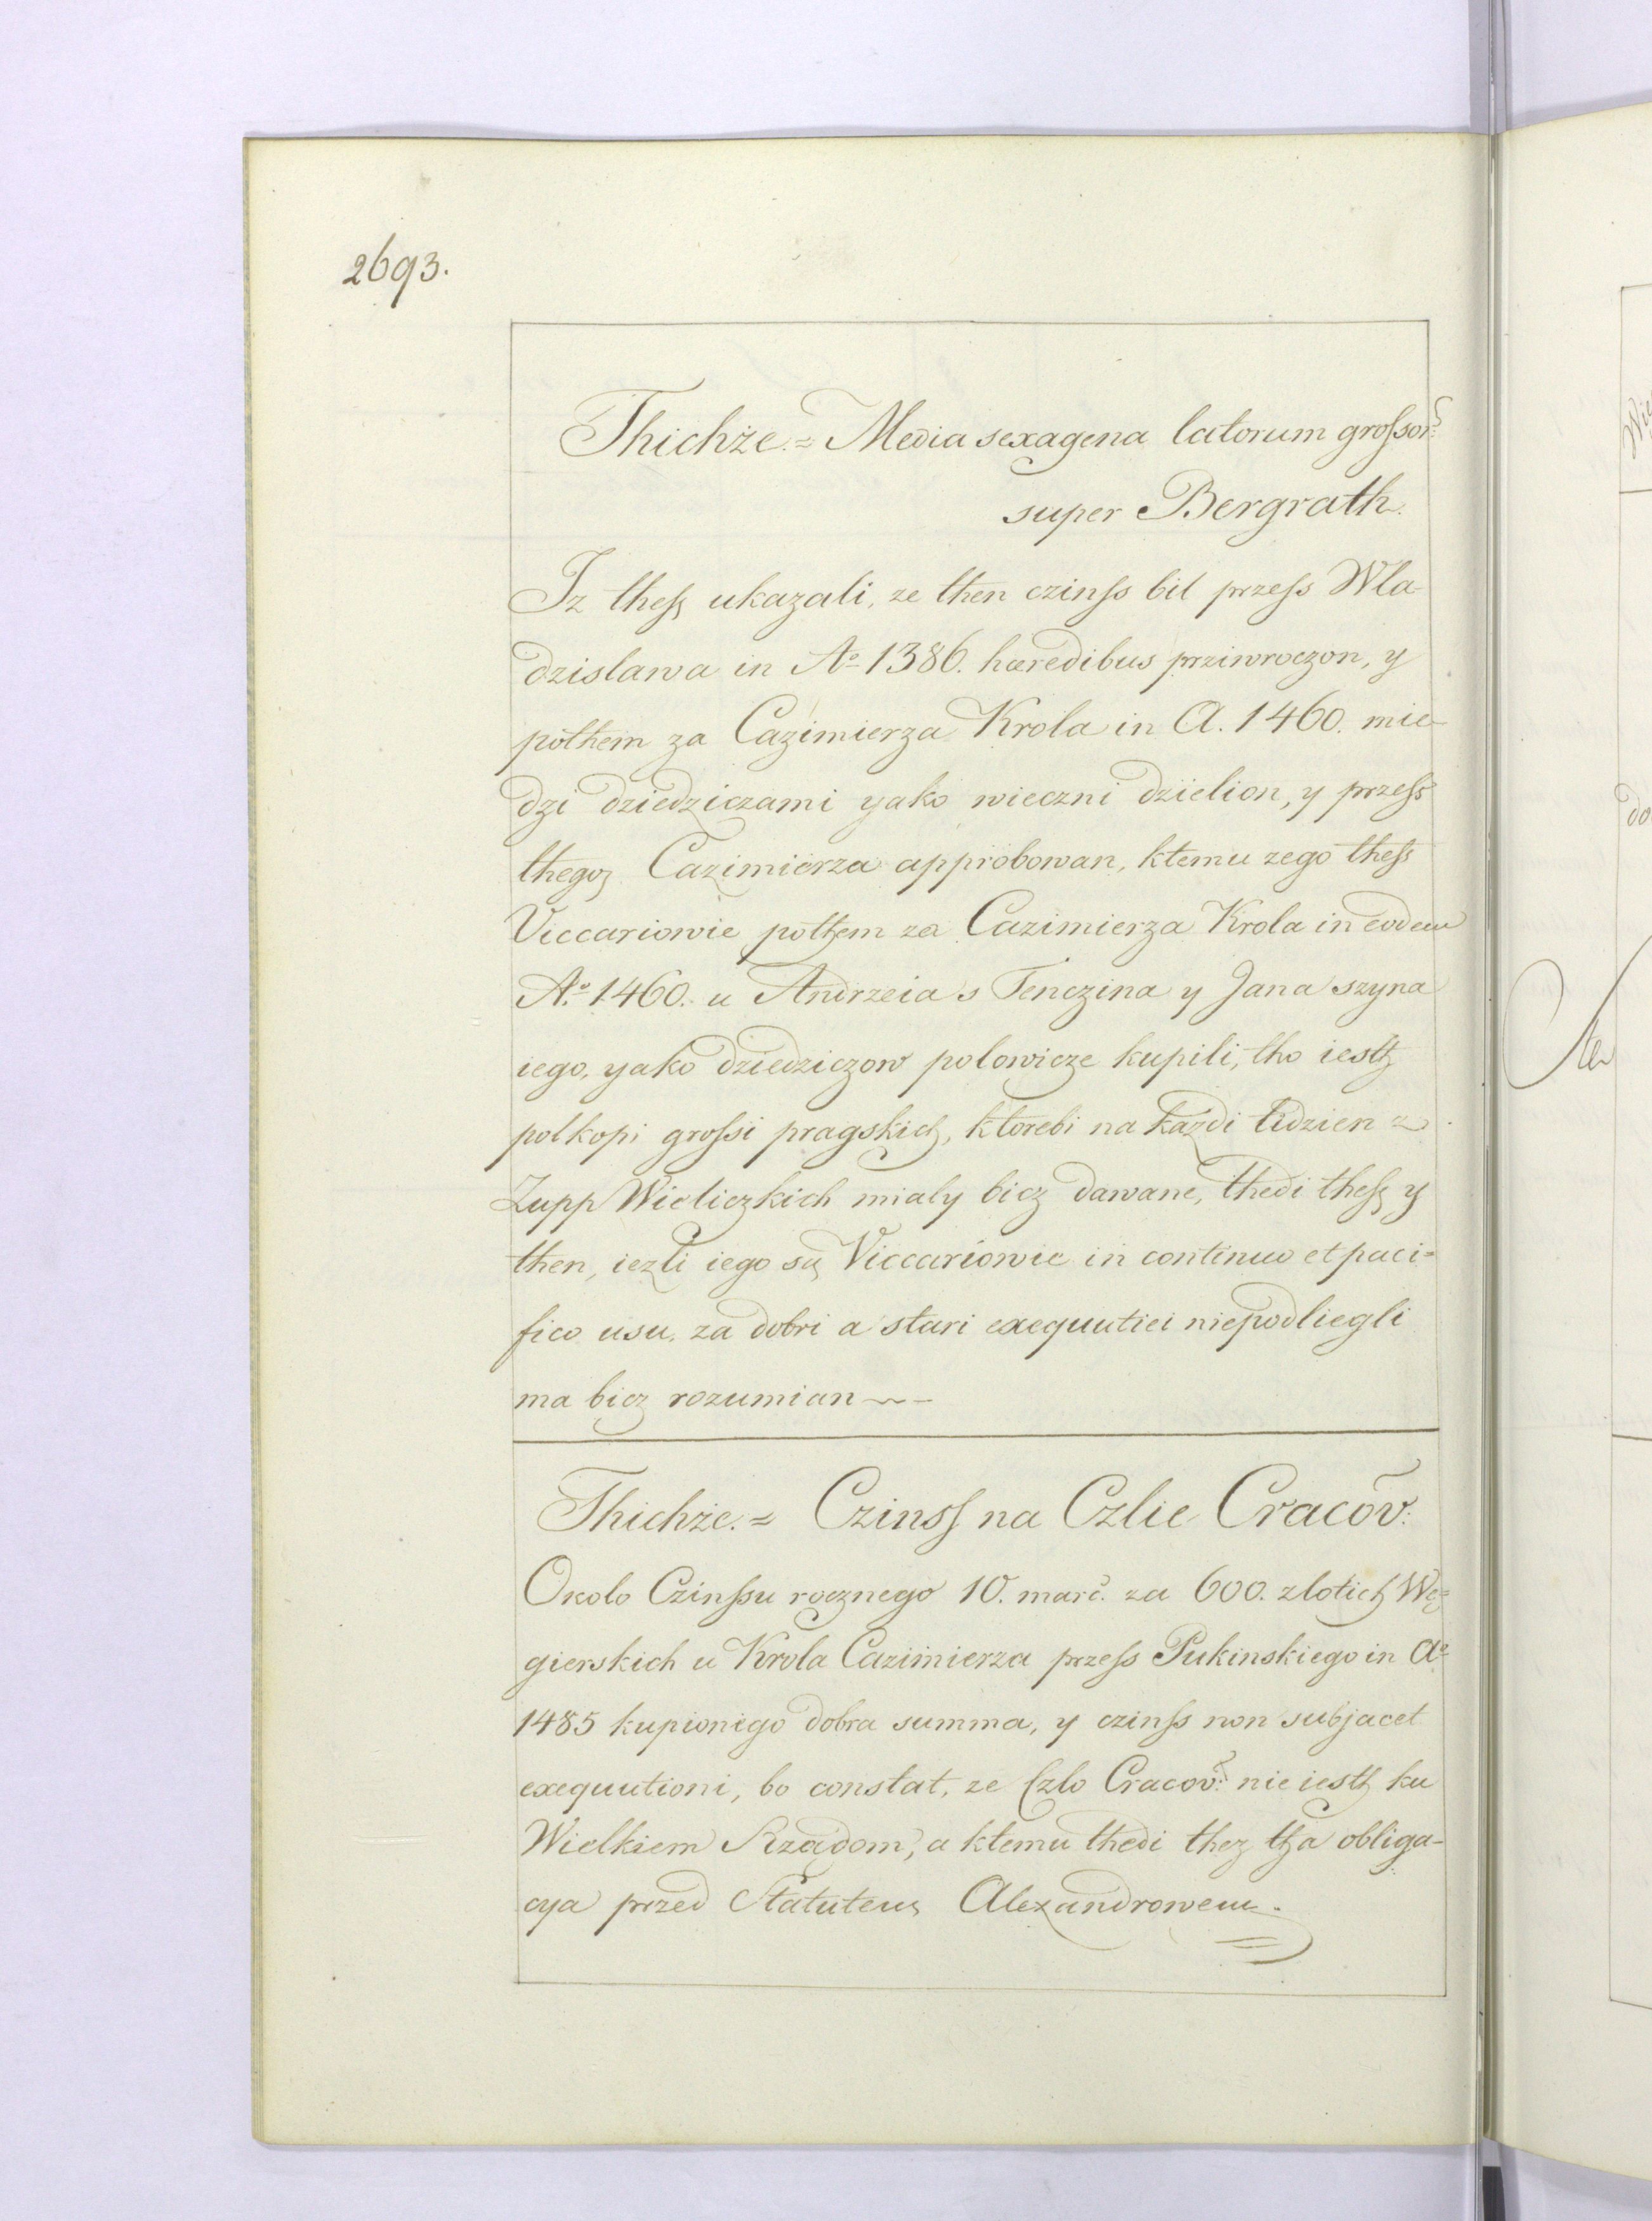 2693.
Thichże. = Media sexagena latorum grossor:
super Bergrath.
Iz thess ukazali, ze then czinss bil przess Wla-
dzislawa in Aº 1386. hæredibus prziwroczon, y
pothem za Cazimierza Krola in A. 1460. mie-
dzi dziedziczami yako wieczni dzielion, y przess
thegoz Cazimierza approbowan, ktemu zego thess
Viccariowie pothem za Cazimierza Krola in eodem
Aº 1460. u Andrzeia s Tenczina y Jana szyna
iego, yako dziedziczow polowicze kupili, tho iesth
polkopi grossi pragskich, ktorebi na kazdi tidzien z
Zupp Wieliczkich mialy bicz dawane, thedi thess y
then, iezli iego są Viccariowie in continuo et paci=
fico usu, za dobri a stari exequutiei niepodliegli
ma bicz rozumian ~-
Thichże. = Czinss na Czlie Cracov:
Okolo Czinssu rocznego 10. marc. za 600. zlotich Wę=
gierskich u Krola Cazimierza przess Pukinskiego in Aº
1485 kupionego dobra summa, y czinss non subjacet
exequutioni, bo constat, ze Czlo Cracov: nie iesth ku
Wielkiem Rządom, a ktemu thedi thez tha obliga-
cya przed Statutem Alexandrowem.
Wie
do